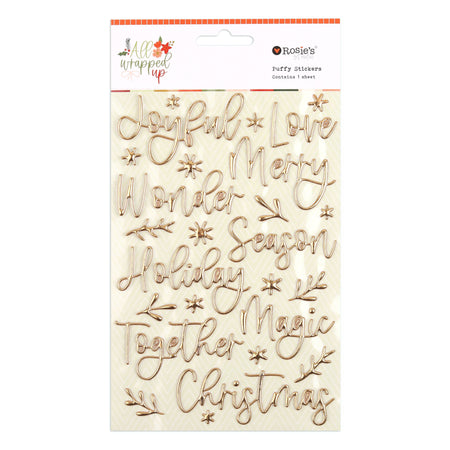 All
wrapped
up
Rosie's
Puffy Stickers
Contains 1 sheet
Joyful Love
Merry
Wonder
Season
Holiday
Magic
Together
Christmas